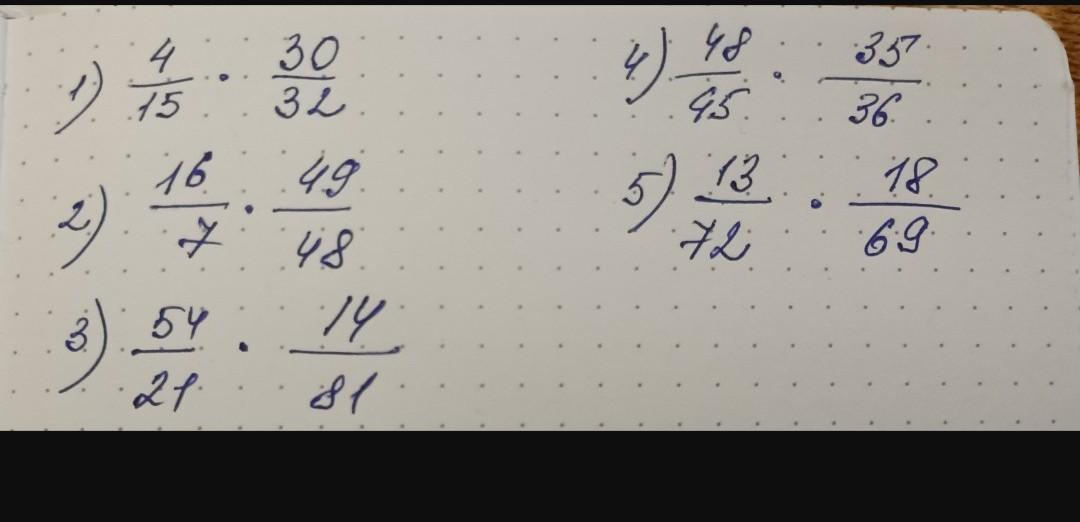 1) 4/15 · 30/32
2) 16/7 · 49/48
3) 54/21 · 14/81
4) 48/45 · 35/36
5) 13/72 · 18/69